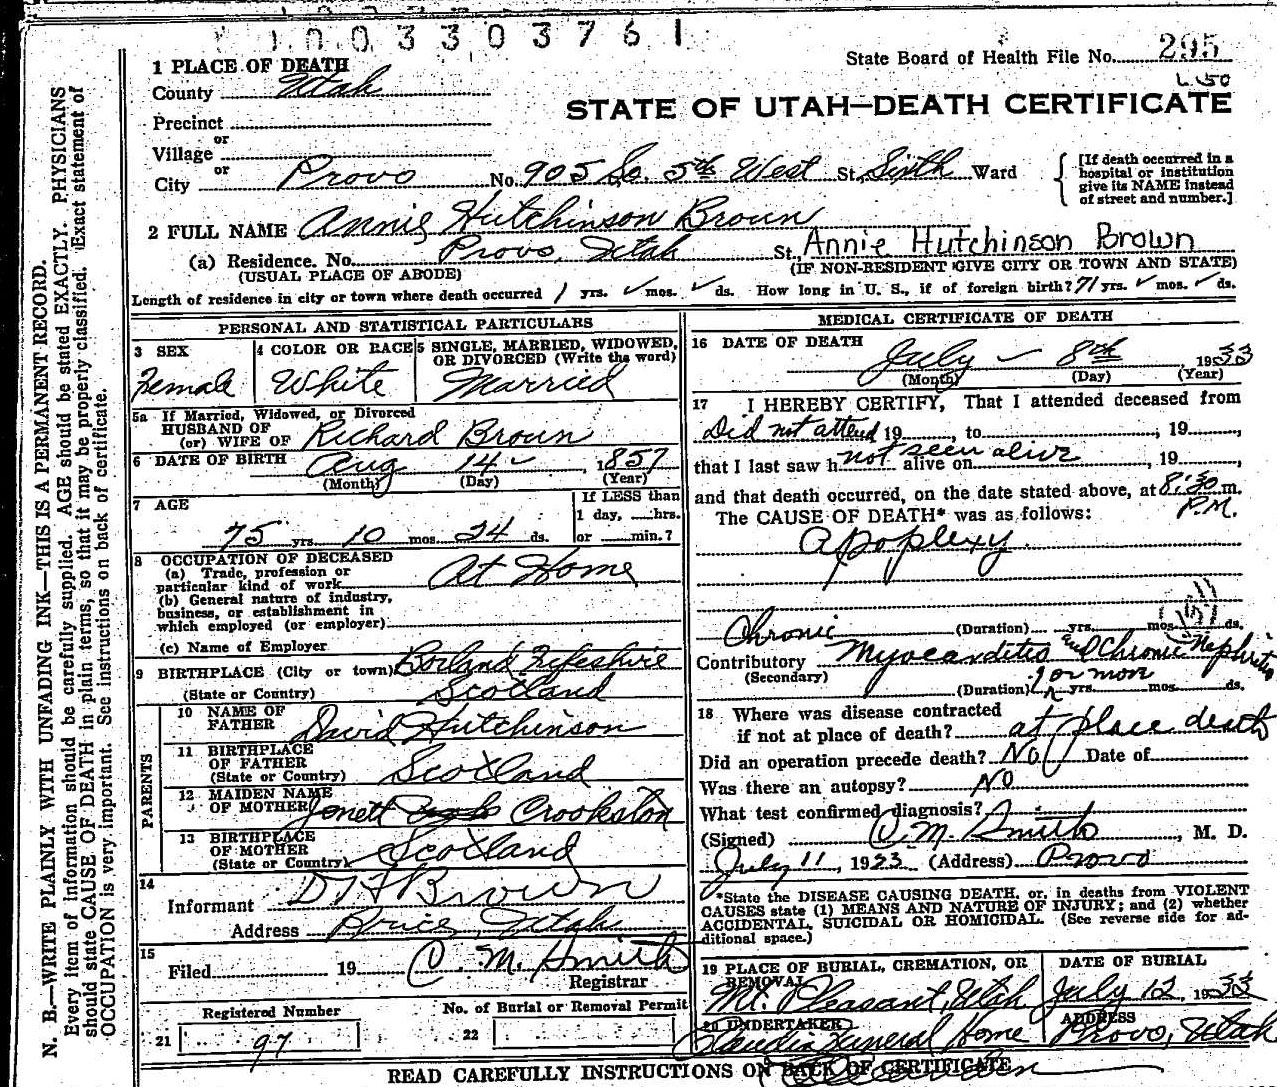 1003303761
State Board of Health File No. 295
L.50
STATE OF UTAH—DEATH CERTIFICATE
1 PLACE OF DEATH
County Utah
Precinct
or
Village
or
City Provo No. 905 So. 5th West St. Sixth Ward
[If death occurred in a
hospital or institution
give its NAME instead
of street and number.]
2 FULL NAME Annie Hutchinson Brown
(a) Residence. No. Provo, Utah St., Annie Hutchinson Brown
(USUAL PLACE OF ABODE) (IF NON-RESIDENT GIVE CITY OR TOWN AND STATE)
Length of residence in city or town where death occurred 1 yrs. ✓ mos. ✓ ds. How long in U. S., if of foreign birth? 71 yrs. ✓ mos. ✓ ds.
PERSONAL AND STATISTICAL PARTICULARS
3 SEX
Female
4 COLOR OR RACE
White
5 SINGLE, MARRIED, WIDOWED,
OR DIVORCED (Write the word)
Married
5a If Married, Widowed, or Divorced
HUSBAND OF
(or) WIFE OF Richard Brown
6 DATE OF BIRTH Aug 14 - , 1857
(Month) (Day) (Year)
7 AGE
75 yrs. 10 mos. 24 ds.
If LESS than
1 day, ....hrs.
or ......min.?
8 OCCUPATION OF DECEASED
(a) Trade, profession or
particular kind of work At Home
(b) General nature of industry,
business, or establishment in
which employed (or employer)
(c) Name of Employer
9 BIRTHPLACE (City or town) Borland Fifeshire
(State or Country) Scotland
PARENTS
10 NAME OF
FATHER David Hutchinson
11 BIRTHPLACE
OF FATHER
(State or Country) Scotland
12 MAIDEN NAME
OF MOTHER Jenett Crookston
13 BIRTHPLACE
OF MOTHER
(State or Country) Scotland
14
Informant D H Brown
Address Price, Utah
15
Filed 19 C. M. Smith
Registrar
Registered Number
21 97
No. of Burial or Removal Permit
22
MEDICAL CERTIFICATE OF DEATH
16 DATE OF DEATH
July - 8th 1933
(Month) (Day) (Year)
17 I HEREBY CERTIFY, That I attended deceased from
Did not attend 19 , to , 19 ,
that I last saw h not seen alive alive on , 19 ,
and that death occurred, on the date stated above, at 8:30 m.
P.M.
The CAUSE OF DEATH* was as follows:
Apoplexy
(Duration) yrs. mos. ds.
Chronic
Contributory Myocarditis and Chronic Nephritis
(Secondary)
(Duration) 1 or mon yrs. mos. ds.
18 Where was disease contracted
if not at place of death? at place death
Did an operation precede death? No Date of
Was there an autopsy? No
What test confirmed diagnosis?
(Signed) C. M. Smith, M. D.
July 11, 1933 (Address) Provo
*State the DISEASE CAUSING DEATH, or, in deaths from VIOLENT
CAUSES state (1) MEANS AND NATURE OF INJURY; and (2) whether
ACCIDENTAL, SUICIDAL OR HOMICIDAL. (See reverse side for ad-
ditional space.)
19 PLACE OF BURIAL, CREMATION, OR
REMOVAL
Mt. Pleasant, Utah
DATE OF BURIAL
July 12, 1933
20 UNDERTAKER
Funeral Home
ADDRESS
Provo, Utah
READ CAREFULLY INSTRUCTIONS ON BACK OF CERTIFICATE
N. B.—WRITE PLAINLY WITH UNFADING INK—THIS IS A PERMANENT RECORD.
Every item of information should be carefully supplied. AGE should be stated EXACTLY. PHYSICIANS
should state CAUSE OF DEATH in plain terms, so that it may be properly classified. Exact statement of
OCCUPATION is very important. See instructions on back of certificate.